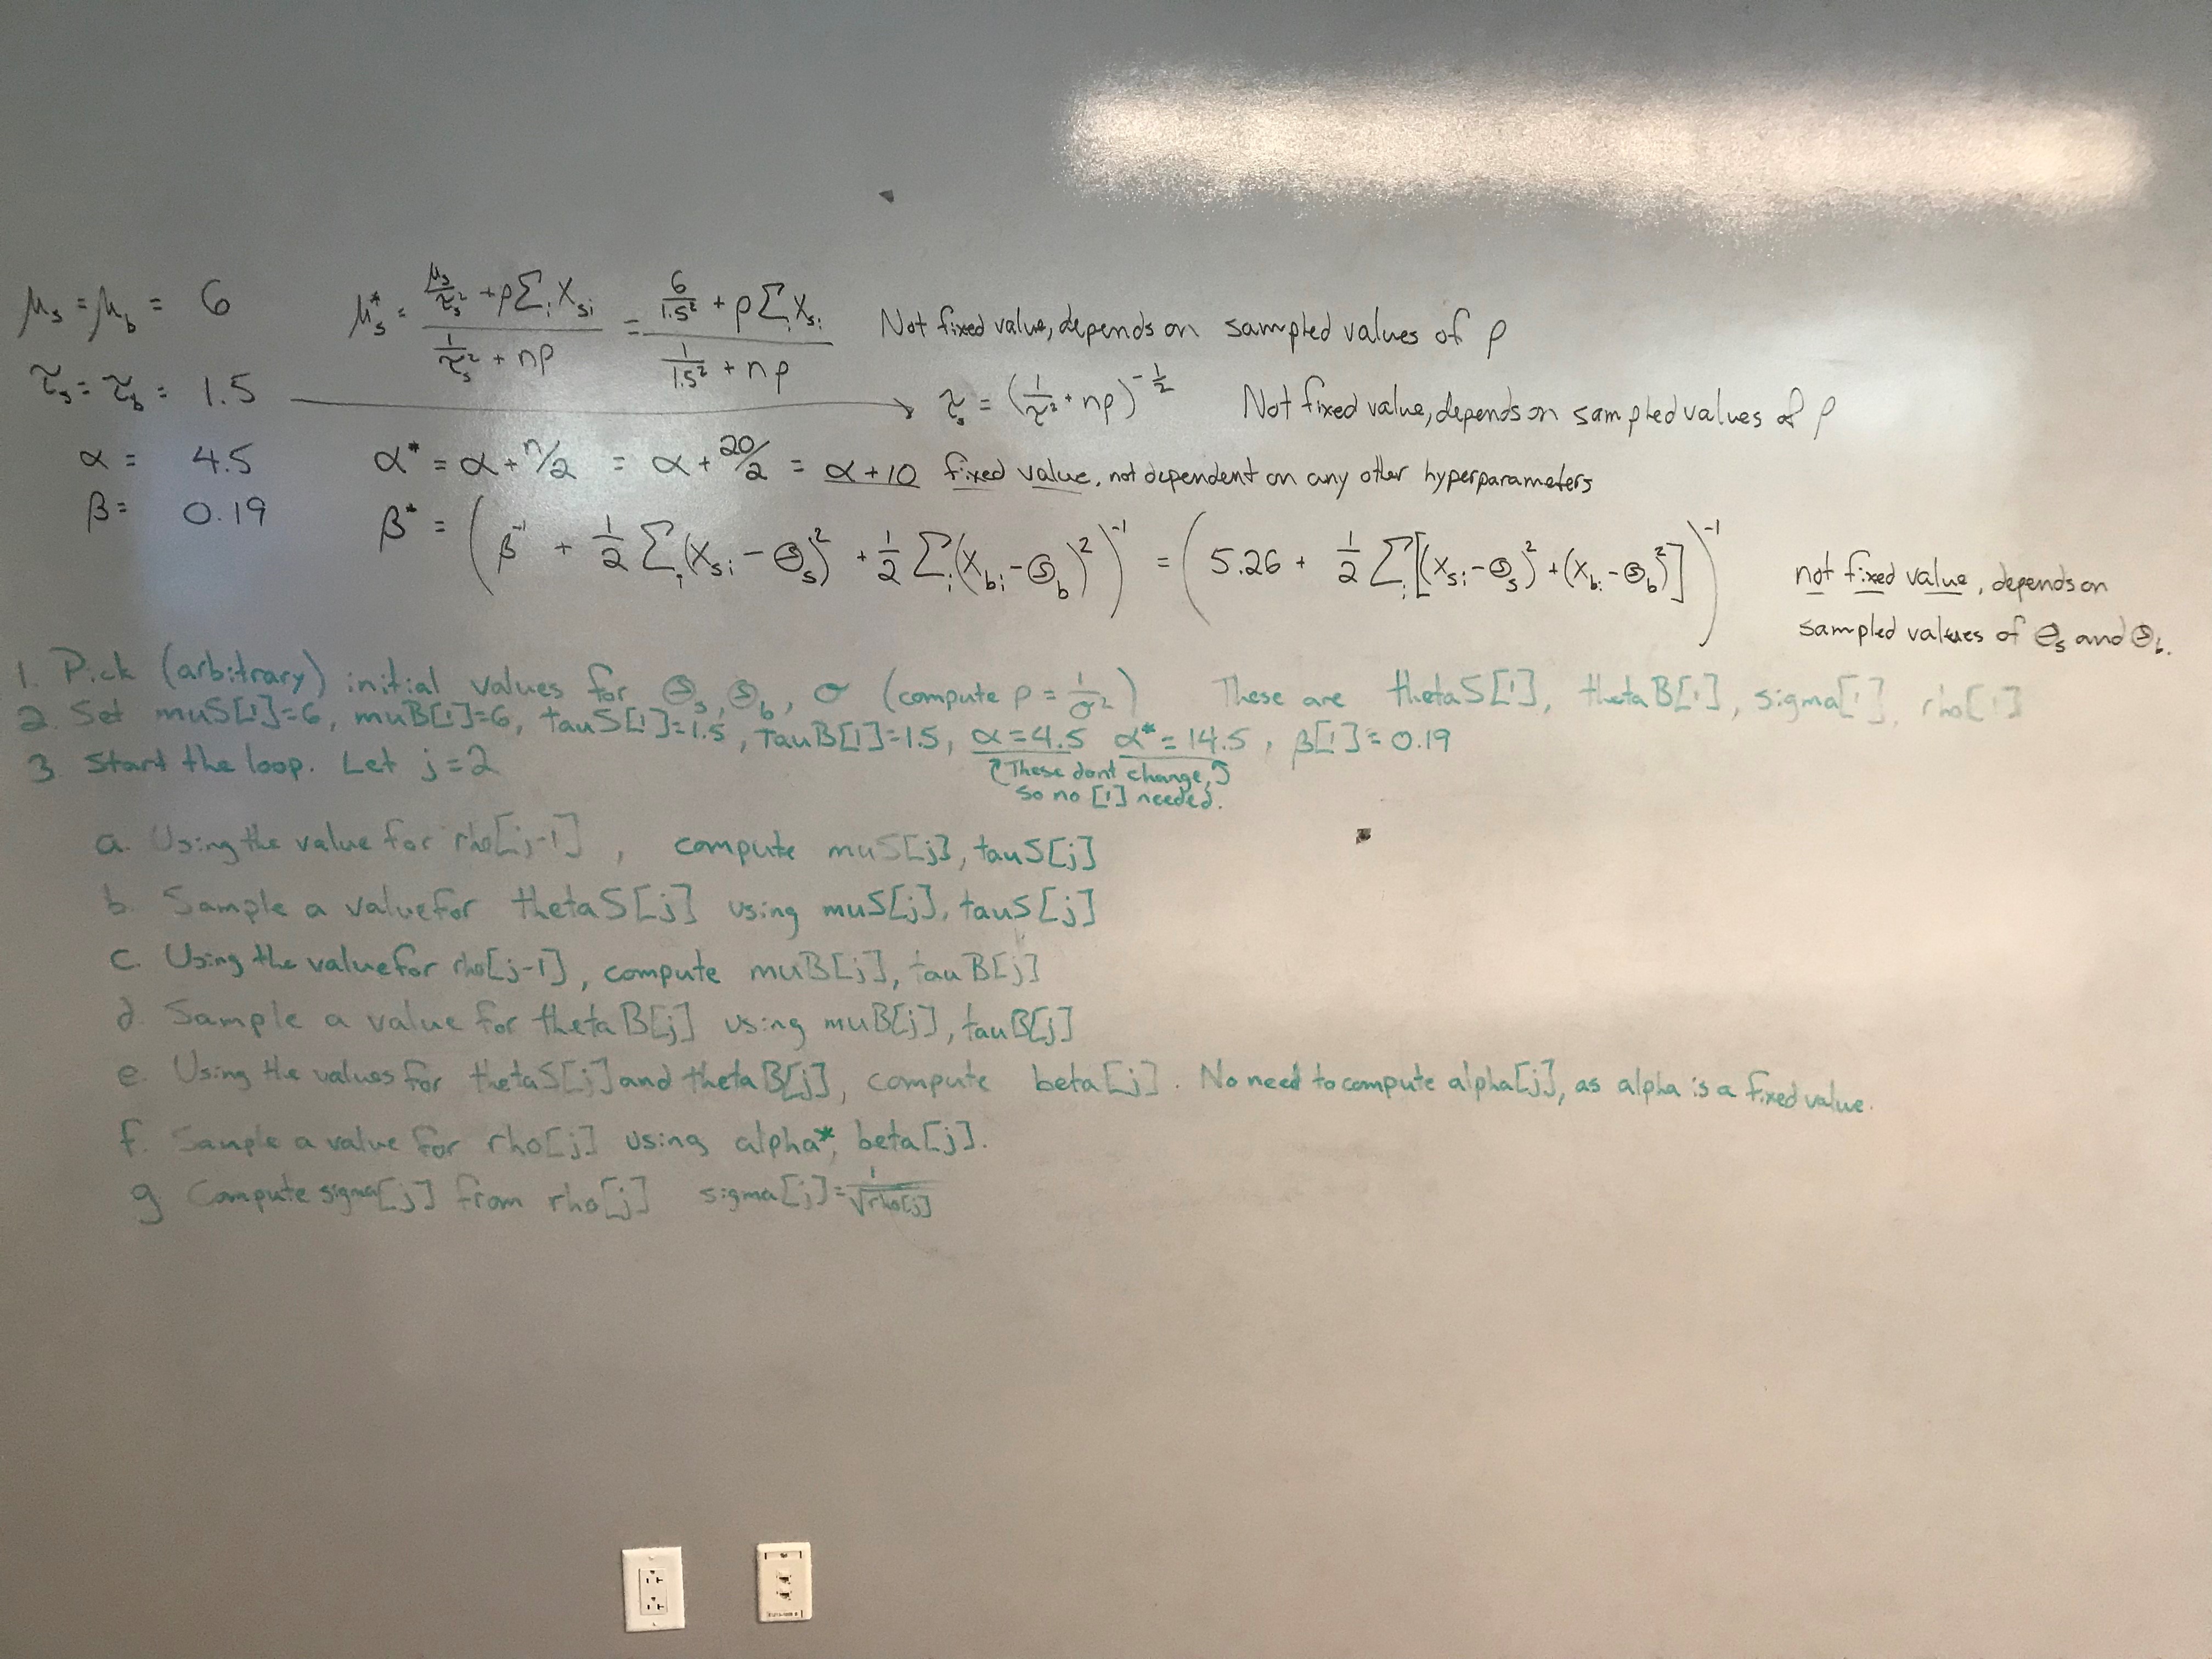 μ_s = μ_b = 6
μ_s^* = (μ_s/τ_s^2 + ρ Σ_i X_si) / (1/τ_s^2 + nρ) = (6/1.5^2 + ρ Σ_i X_si) / (1/1.5^2 + nρ) Not fixed value, depends on sampled values of ρ
τ_s = τ_b = 1.5 → τ_s = (1/τ^2 + nρ)^(-1/2) Not fixed value, depends on sampled values of ρ
α = 4.5 α^* = α + n/2 = α + 20/2 = α + 10 fixed value, not dependent on any other hyperparameters
β = 0.19 β^* = (β^-1 + 1/2 Σ_i (X_si - Θ_s)^2 + 1/2 Σ_i (X_bi - Θ_b)^2)^-1 = (5.26 + 1/2 Σ_i [(X_si - Θ_s)^2 + (X_bi - Θ_b)^2])^-1
not fixed value, depends on
sampled values of Θ_s and Θ_b.
1. Pick (arbitrary) initial values for Θ_s, Θ_b, σ (compute ρ = 1/σ^2) These are thetaS[1], thetaB[1], sigma[1], rho[1]
2. Set muS[1]=6, muB[1]=6, tauS[1]=1.5, tauB[1]=1.5, α=4.5 α^*=14.5, β[1]=0.19
↑These dont change,↑
so no [1] needed.
3 Start the loop. Let j=2
a. Using the value for rho[j-1], compute muS[j], tauS[j]
b. Sample a value for thetaS[j] using muS[j], tauS[j]
c. Using the value for rho[j-1], compute muB[j], tauB[j]
d. Sample a value for thetaB[j] using muB[j], tauB[j]
e. Using the values for thetaS[j] and thetaB[j], compute beta[j]. No need to compute alpha[j], as alpha is a fixed value.
f. Sample a value for rho[j] using alpha*, beta[j].
g Compute sigma[j] from rho[j] sigma[j]=1/√rho[j]